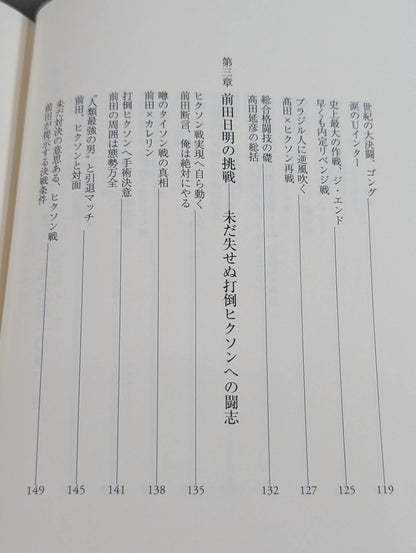 世紀の大決闘、ゴング
涙のUインター
119
史上最大の作戦、ジ・エンド
早くも内定リベンジ戦
125
ブラジル人に逆風吹く
髙田×ヒクソン再戦
127
総合格闘技の礎
髙田延彦の総括
132
第三章 前田日明の挑戦――未だ失せぬ打倒ヒクソンへの闘志
ヒクソン戦実現へ自ら動く
前田断言、俺は絶対にやる
135
噂のタイソン戦の真相
前田×カレリン
138
打倒ヒクソンへ手術決意
前田の周囲は態勢万全
141
"人類最強の男"と引退マッチ
前田、ヒクソンと対面
145
未だ対決の意思ある、ヒクソン戦
前田が提示する決戦条件
149